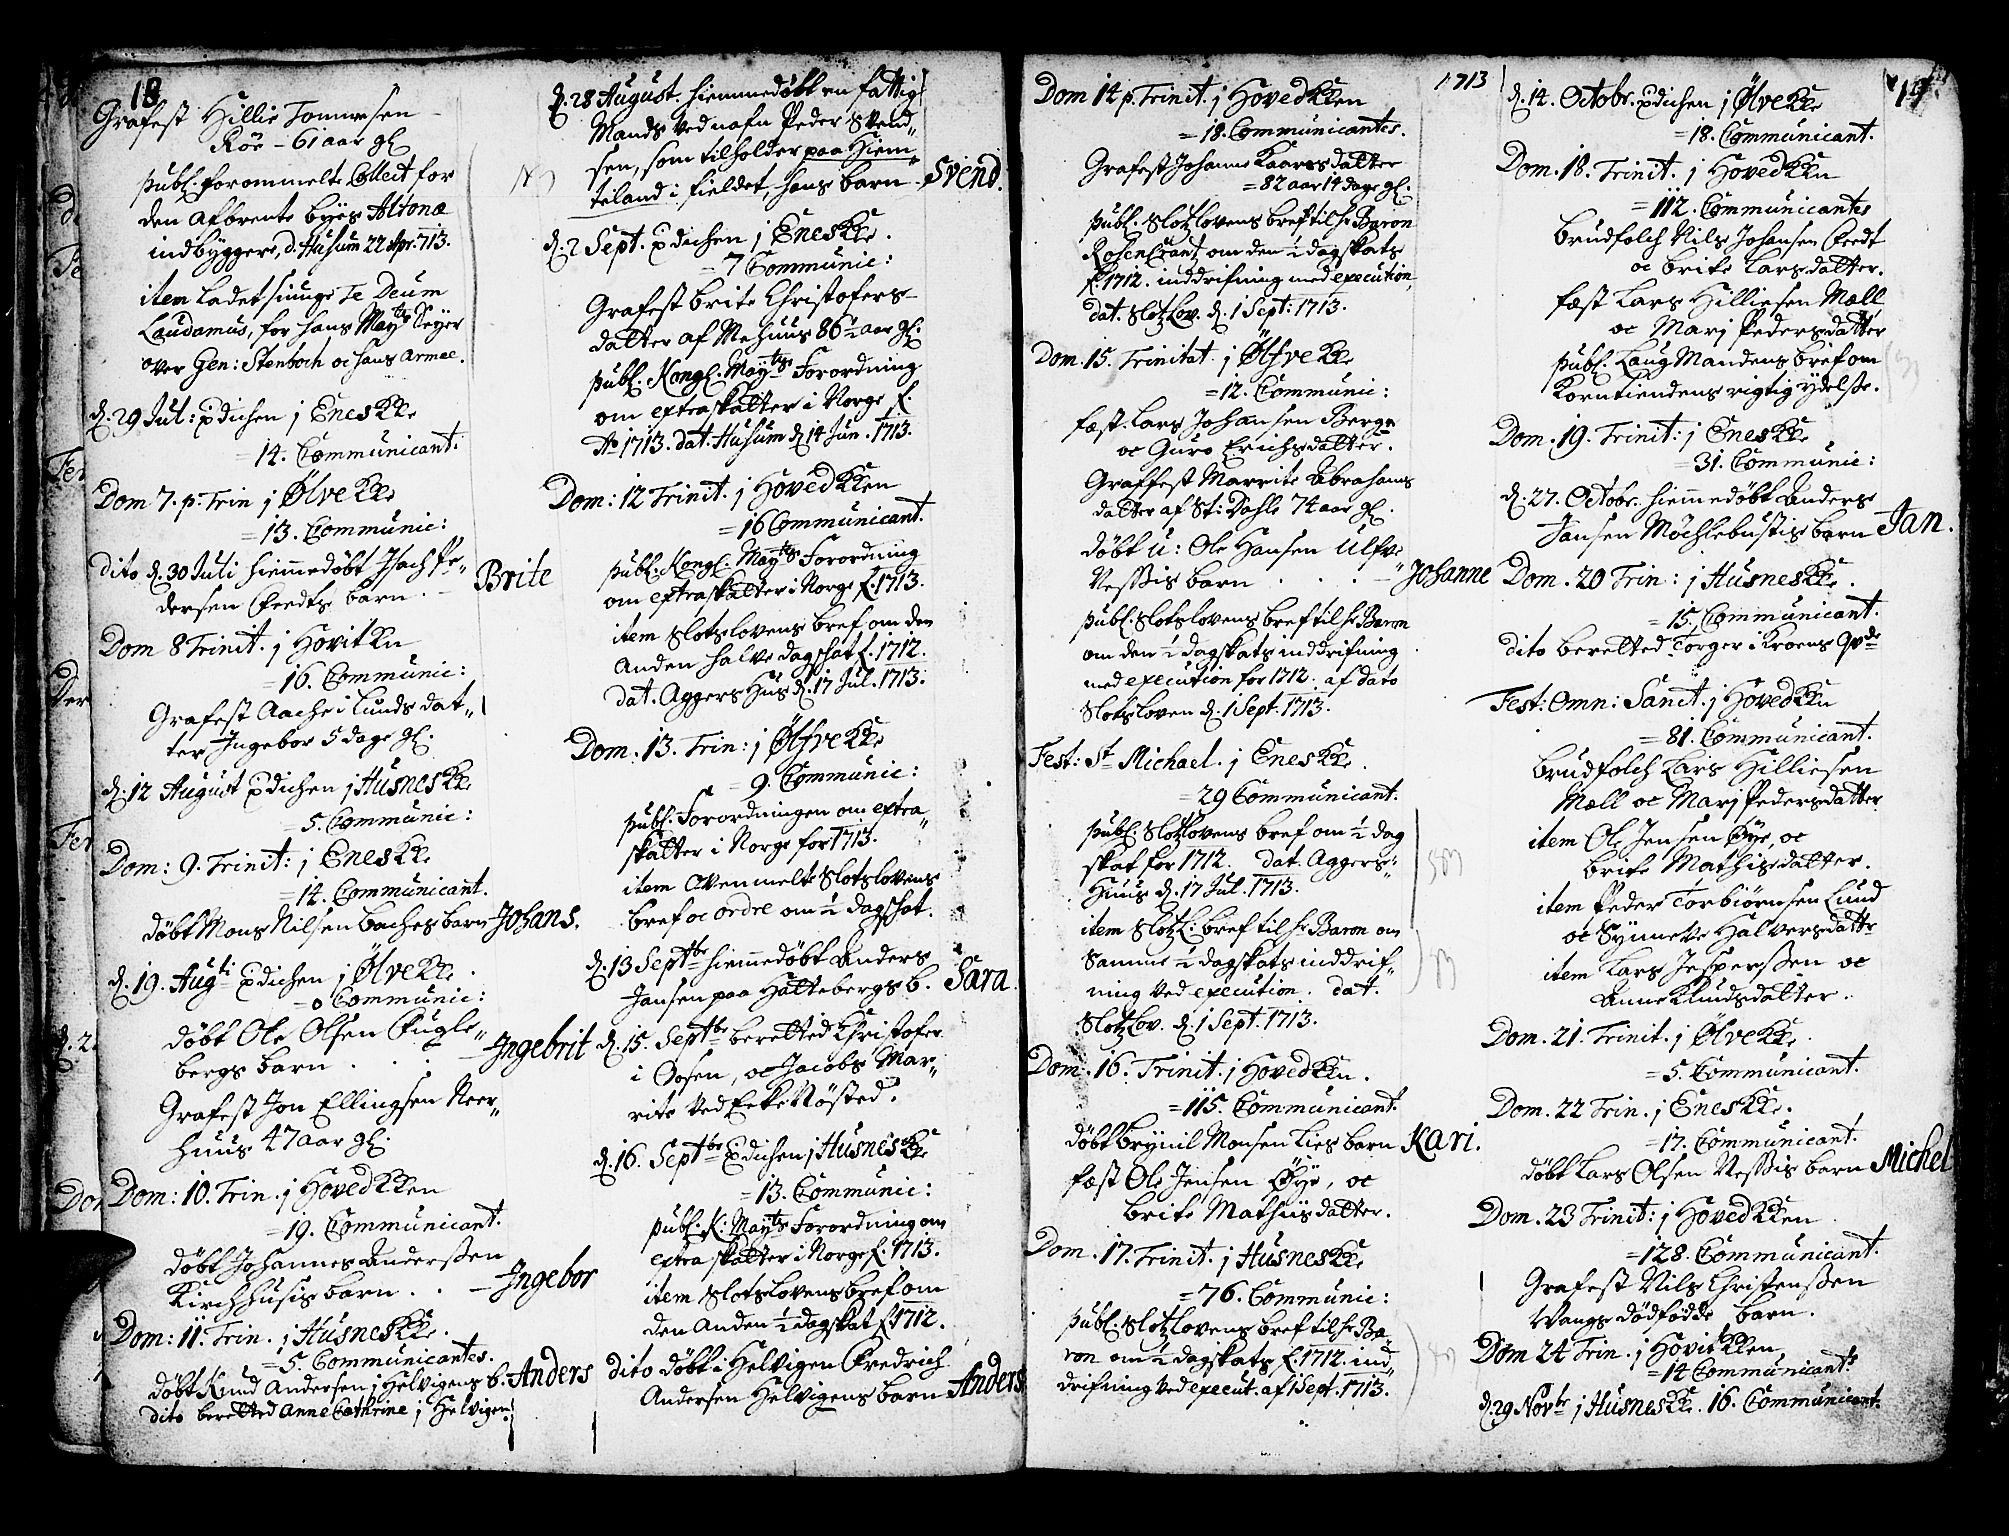 18
Grafest Hillie Tommesen
Röe – 61 aar gl
publ. forommelte Collect for
den afbrente byes Altonæ
indbyggere, d. Husum 22 Apr. 713.
item ladet siunge Te Deum
Laudamus, for hans Mayts Seyer
over Gen: Stenboch oc hans Armee.
d. 29 Jul: prædichen j Enes KKe
= 14. Communicant:
Dom 7. p. Trin j Ølve KKe
= 13. Communic:
dito d. 30 Juli hiemmedøbt Isach Pe„
dersen barn. – Brite
Dom 8 Trinit. j Hovit Kn
= 16. Communic:
Grafest Aache i Lunds dat„
ter Ingebor 5 dage gl.
d. 12 August prædichen j Husnes KKe
= 5. Communic:
Dom: 9. Trinit: j Enes KKe
= 14. Communicant.
døbt Mons Nilsen Baches barn Johans.
d. 19. Augti prædichen j Ølve KKe
= 0 Communic:
døbt Ole Olsen Fugle„
bergs barn . . . – Ingebrit
Grafest Jon Ellingsen Neer„
huus 47 aar gl.
Dom: 10. Trin. j Hoved KKen
= 19. Communicant.
døbt Johannes Anderssen
Kirchhusis barn . . – Ingebor
Dom: 11. Trin. j Husnes KKe.
= 5. Communicantes.
døbt Knud Andersen j Helvigens b. Anders
dito beretted Anne Cathrine j Helvigen
d. 28 August. hiemmedøbt en fattig
Mands ved nafn Peder Svend„
sen, som tilholder paa Hiem„
teland i fieldet, hans barn. Svend.
d. 2 Sept. prædichen j Enes KKe.
= 7 Communic:
Grafest Brite Christofers–
datter af Mehuus 86 ½ aar gl.
publ. Kongl. Mayts Forordning
om extraskatter i Norge f.
Ao 1713. dat. Husum d 14 Jun. 1713.
Dom: 12 Trinit. j Hoved KKen
= 16 Communicant.
publ. Kongl. Mayts Forordning
om extraskatter i Norge f. 1713.
item Slotslovens bref om den
Anden halve dagskat f. 1712.
dat. Aggers Hus d. 17 Jul. 1713.
Dom. 13. Trin: j Ølfve KKe
= 9. Communic:
publ. Forordningen om extra„
skatter i Norge for 1713.
item ovenmelte Slotslovens
bref oc ordre om ½ dagskat.
d. 13 Septbr hiemmedøbt Anders
Jansen paa Hattebergs b. Sara.
d. 15. Septbr beretted Christofer
i Osen, oc Jacobs Mar„
rite ved Eeke Nösted.
d. 16. Septbr prædichen j Husnes KKe
= 13. Communic:
publ. K: Mayts Forordning om
extra skatter i Norge f. 1713.
item Slotslovens bref om
den Anden ½ dagskat f. 1712.
dito døbt i Helvigen Fredrich
Andersen Helvigens barn Anders
1713
Dom 14 p. Trinit. j Hoved KKen
= 18. Communicantes.
Grafest Johanne Kaarsdatter
= 82 aar 14 dage gl.
publ. Slotzlovens bref til hr Baron
Rosencrantz om den ½ dagskats
f. 1712. inddrifning med execution,
dat. SlotzLov. d. 1 Sept: 1713.
Dom. 15. Trinitat. j Ølfve KKe
= 12. Communic:
fæst. Lars Johansen Berge
oc Guro Erichsdatter.
Graffest Marrite Abrahams
datter af St: Dahle 74 aar gl.
døbt u: Ole Hansen Ulfve
Nessis barn . . . . – Johanne
publ. Slotslovens bref til hr Baron
om den ½ dagskats inddrifning
med execution for 1712. af dato
Slotsloven d. 1 Sept. 1713.
Fest: St Michael. j Enes KKe.
= 29 Communicant.
publ. Slotzlovens bref om ½ dag
skat for 1712. dat. Aggers„
Huus d. 17 Jul. 1713.
item Slotzl. bref til hr Baron om
samme ½ dagskats inddrif„
ning ved execution. dat.
SlotzLov. d. 1 Sept. 1713.
Dom. 16. Trinit. j Hoved KKen.
= 115. Communicant.
døbt Brynil Monsen Lies barn Kari.
fæst Ole Jensen Øye, oc
Brite Mathiisdatter.
Dom. 17. Trinit. j Husnes KKe
= 76. Communic:
publ. Slotzlovens bref til hr Ba„
ron om ½ dagskats f. 1712. ind„
drifning ved execut. af 1 Sept. 1713.
19
d. 14. Octobr. prædichen j Ølve KKe
= 18. Communicant.
Dom. 18. Trinit. j Hoved KKen
= 112. Communicantes
Brudfolch Nils Johansen
oc Brite Larsdatter.
fæst Lars Hilliesen Mæll
oc Marj Pedersdatter
publ. Laug Mandens bref om
Korntiendens rigtig ydelsse.
Dom. 19. Trinit: j Enes KKe
= 31. Communic:
d. 27. Octobr. hiemmedøbt Anders
Jansen Möchlebustis barn Jan.
Dom. 20 Trin: j Husnes KKe.
= 15. Communicant.
dito beretted Torger i Kroens Qvde
Fest: Omn: Sanct. j Hoved KKen
= 81. Communicant.
Brudfolch Lars Hilliesen
Mæll oc Marj Pedersdatter
item Ole Jensen Øye, oc
Brite Mathisdatter.
item Peder Torbiörnsen Lund
oc Synneve Halversdattr
item Lars Jesperssen oc
Anne Knudsdatter.
Dom. 21. Trinit. j Ølve KKe.
= 5. Communicant.
Dom. 22 Trin. j Enes KKe.
= 17. Communicant.
døbt Lars Olsen Nessis barn Michel
Dom. 23 Trinit: j Hoved KKen
= 128. Communicant.
Grafest Nils Christenssen
Vangs dødfødde barn.
Dom 24 Trin. j Hovit KKen,
= 14 Communicants
d. 29 Novbr j Husnes KKe. 16. Communicant.